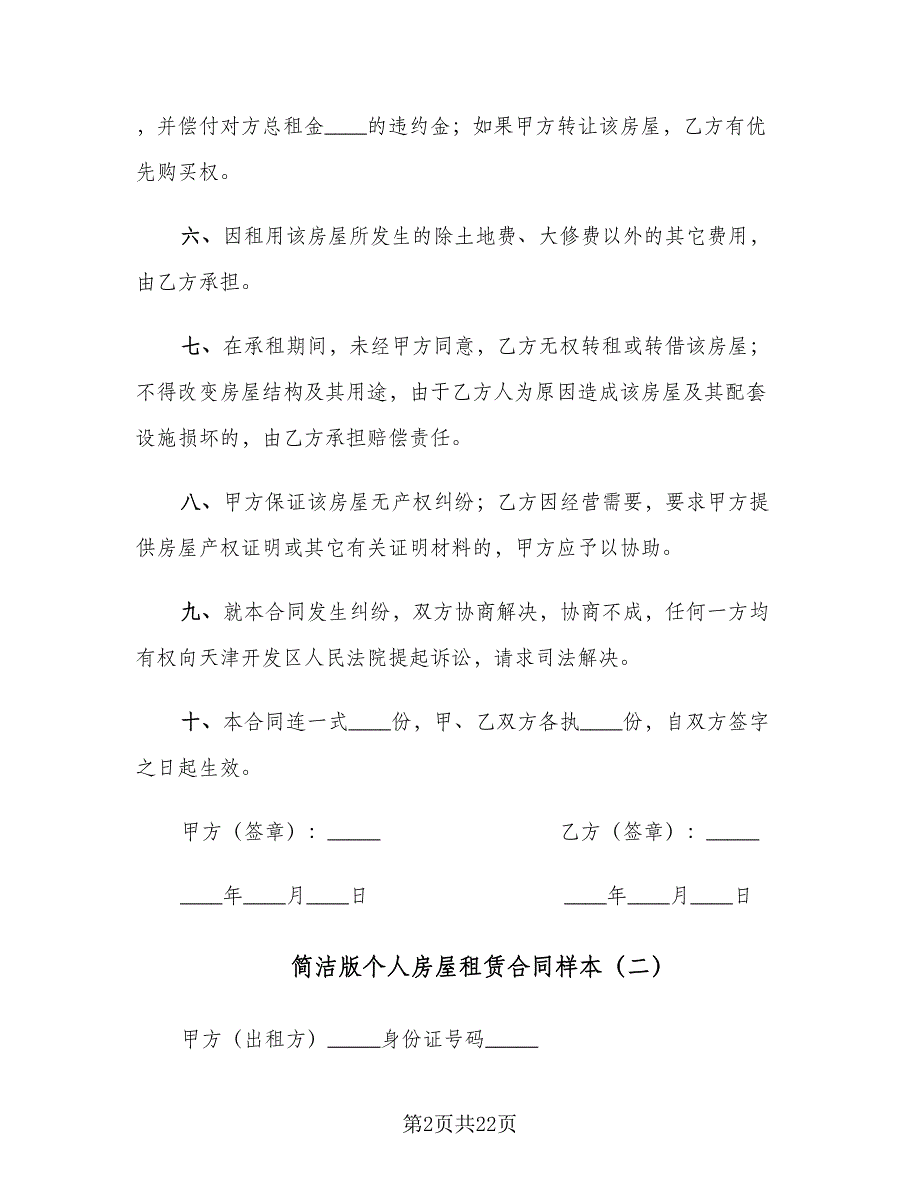 ，并偿付对方总租金____的违约金；如果甲方转让该房屋，乙方有优
先购买权。
六、因租用该房屋所发生的除土地费、大修费以外的其它费用，
由乙方承担。
七、在承租期间，未经甲方同意，乙方无权转租或转借该房屋；
不得改变房屋结构及其用途，由于乙方人为原因造成该房屋及其配套
设施损坏的，由乙方承担赔偿责任。
八、甲方保证该房屋无产权纠纷；乙方因经营需要，要求甲方提
供房屋产权证明或其它有关证明材料的，甲方应予以协助。
九、就本合同发生纠纷，双方协商解决，协商不成，任何一方均
有权向天津开发区人民法院提起诉讼，请求司法解决。
十、本合同连一式____份，甲、乙双方各执____份，自双方签字
之日起生效。
甲方（签章）：_____ 乙方（签章）：_____
____年____月____日 ____年____月____日
简洁版个人房屋租赁合同样本（二）
甲方（出租方）_____身份证号码_____
第2页共22页